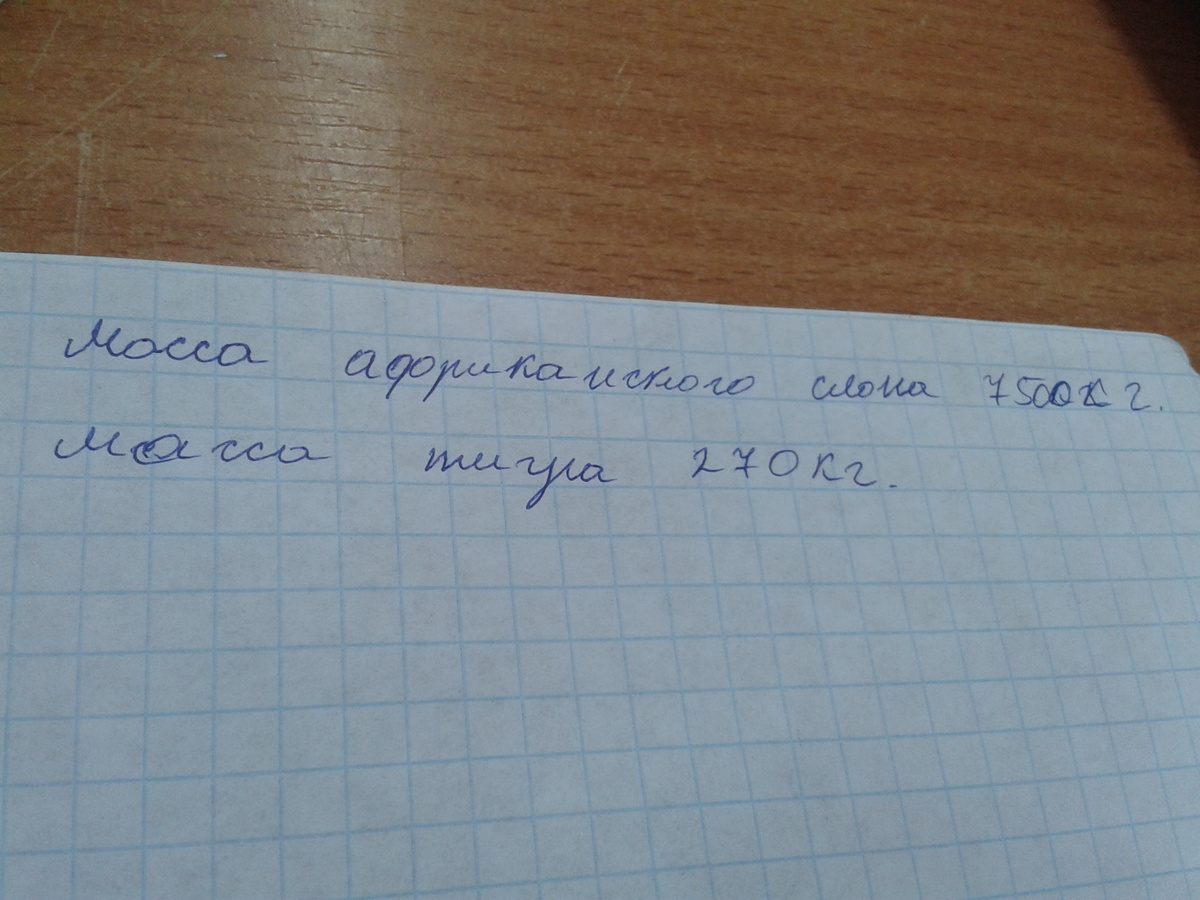 Масса африканского слона 7500кг.
Масса тигра 270кг.